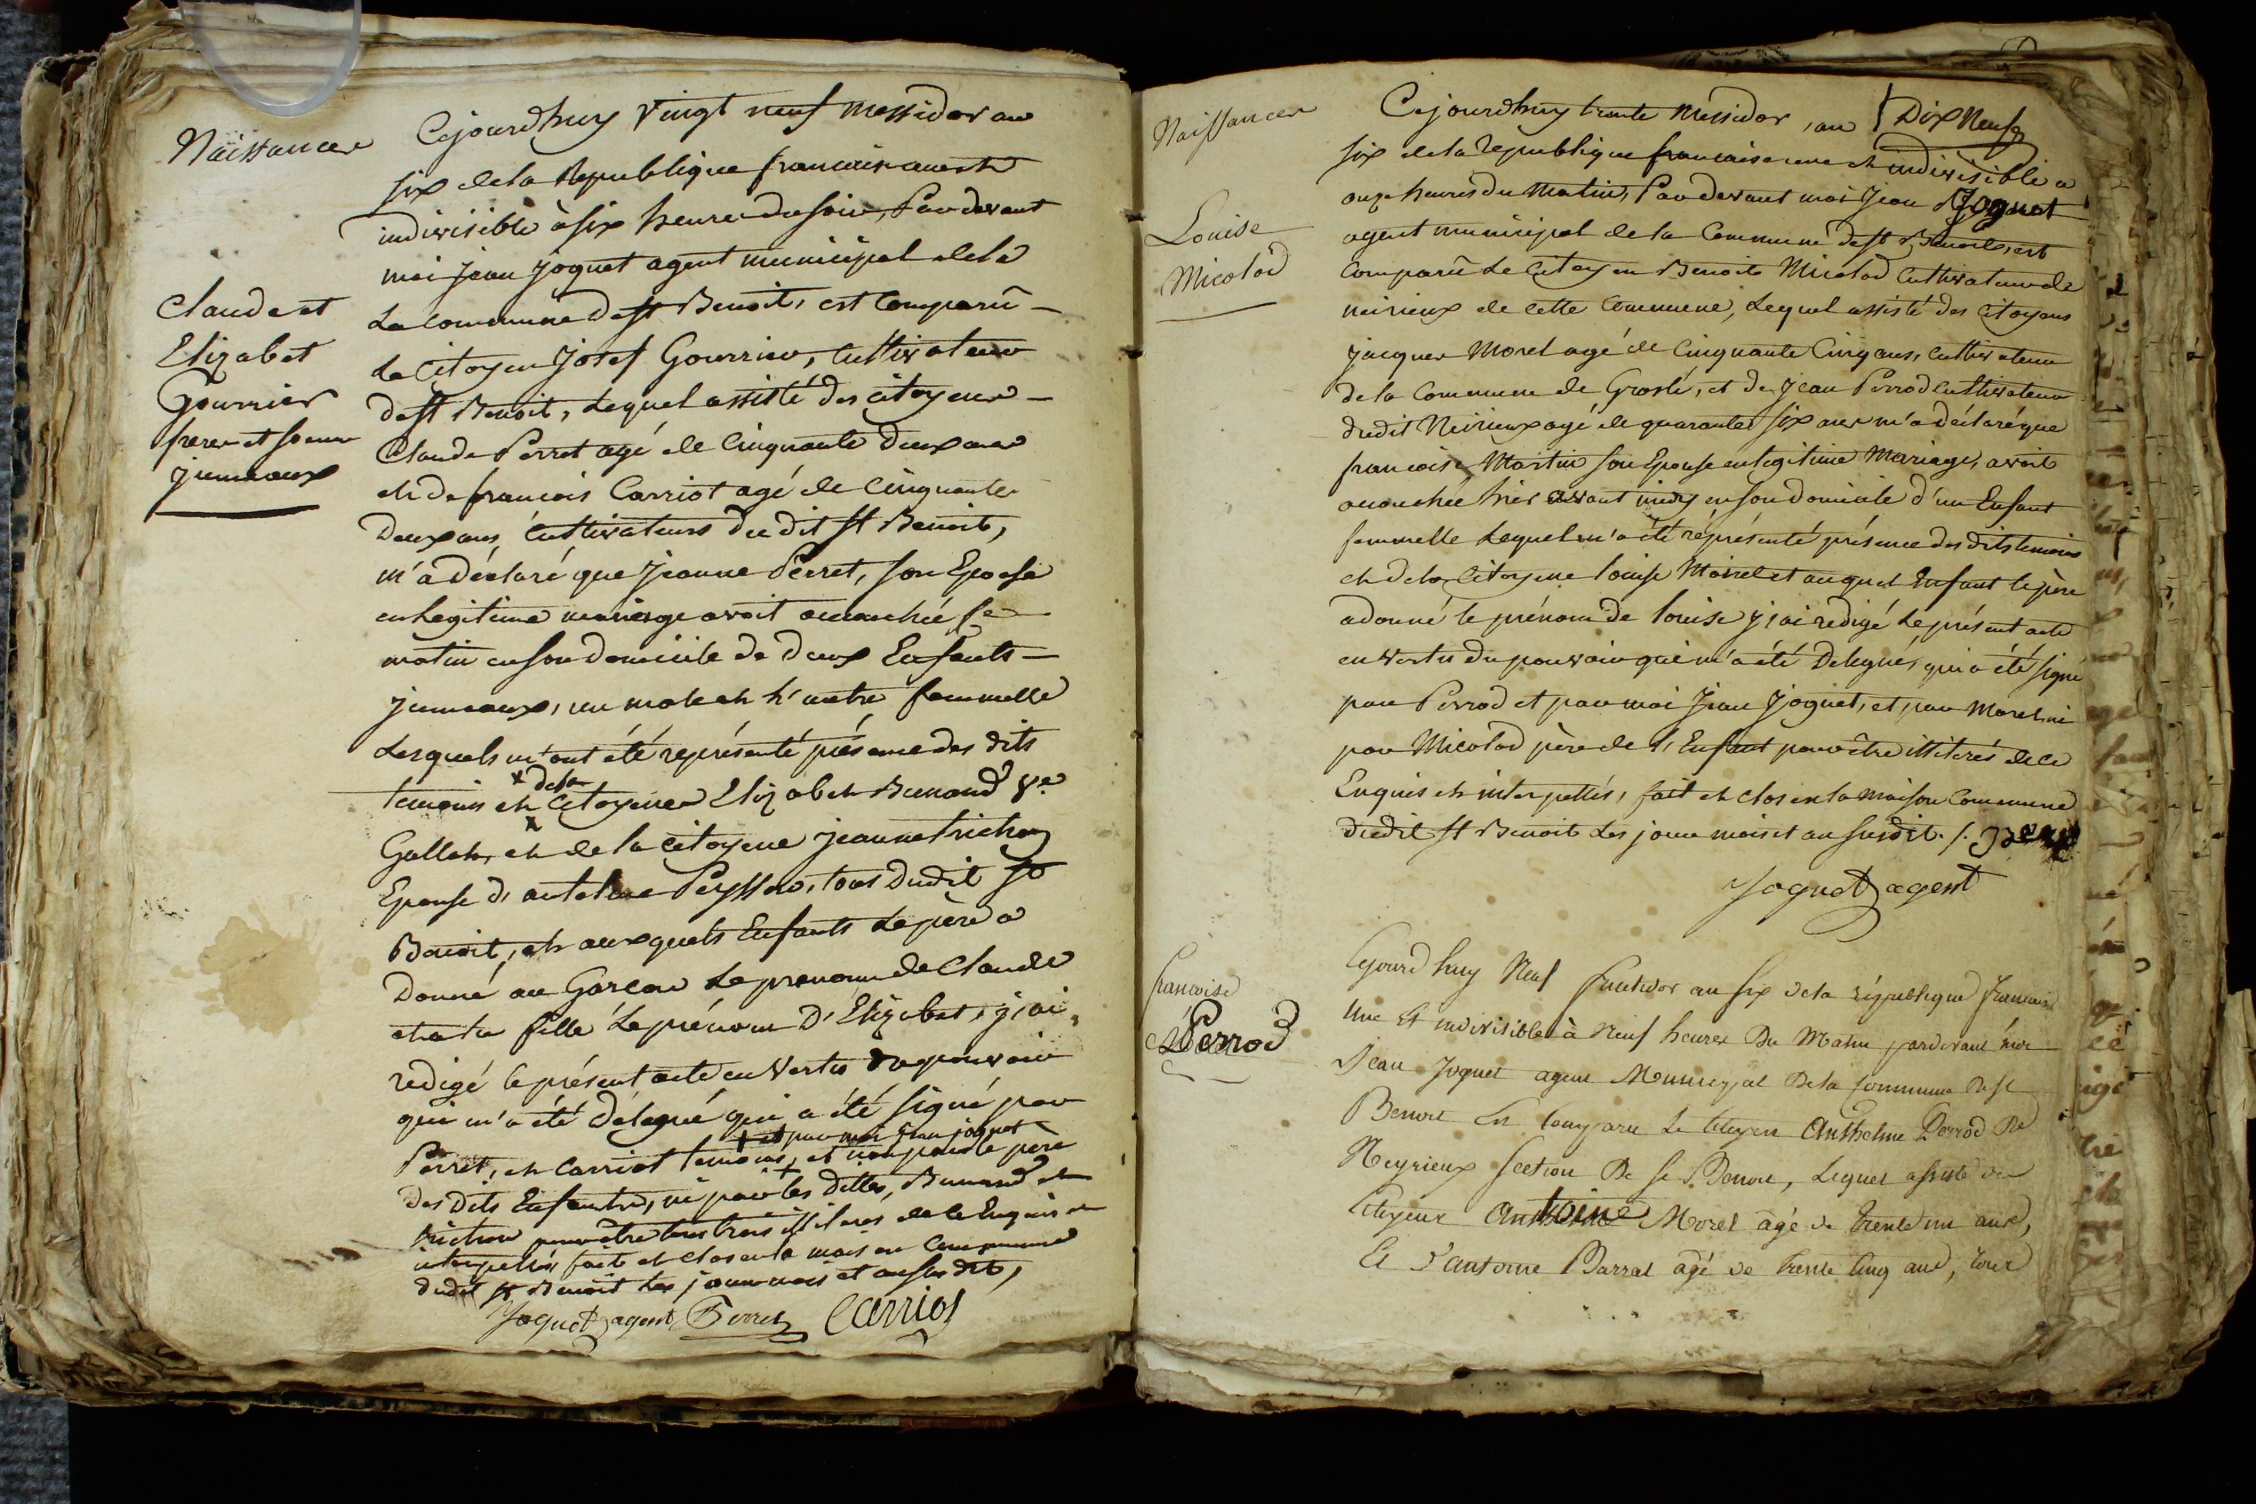 Naissances
Claude et
Elizabet
Gourrier
freres et soeur
jumeaux
Cejourdhuy vingt neuf messidor an
six de la Republique francaise une et
indivisible à six heures du soir, Par devant
moi Jean Joguet agent municipal de la
La commune de st Benoit, est comparû
Le Citoyen Josef Gourrier, cultivateur
de st Benoit, Lequel assisté des citoyens
Claude Perret agé de Cinquante deux ans
et de francois Carriot agé de Cinquante
Deux ans, Cultivateurs du dit st Benoit,
m'a déclaré que Jeanne Perret, son Epouse
en Legitime mariage avoit accouchée ce
matin en son domicile de deux Enfants
jumeaux, un male et l'autre femmelle
Lesquels m'ont été représenté présence des dits
temoins et de la Citoyenne Elizabeth Bunand Ve
Gallet, et de la citoyene jeanne trichon
Epouse d'antelme Peysson, tous dudit st
Benoit, et auxquels Enfants Le père a
Donné au Garcon Le prenom de Claude
et a la fille Le prénom D'Elizabet, j'ai
redigé le présent acte en Vertu du pouvoir
qui m'a été délégué qui a été signé par
Perret, et Carriot temoins, et par moi Jean joguet et non par le père
des dits Enfants, ni par les dittes, Bunand et
trichon pour être tous trois illiterés de ce Enquis et
interpellés, fait et clos en la maison commune
dudit st Benoit Les jour mois et an susdit,
Joguet agent Perret Carriot
Naissances
Louise
Micolod
Cejourdhuy trente Messidor, an Dix Neuf
six de la republique francaise une et indivisible a
onze heures du matin, Par devant moi Jean Joguet
agent municipal de la Commune de st Benoit, est
comparû Le Citoyen Benoit Micolod Cultivateur de
neirieux de cette Commune, Lequel assisté des Citoyens
jacques Morel agé de Cinquante Cinq ans, cultivateur
de la Commune de Groslé, et de Jean Perrod cultivateur
dudit Neirieux agé de quarante six ans m'a déclaré que
francoise Martin son Epouse en legitime Mariage, avoit
accouchée hier avant midy en son domicile d'un Enfant
femmelle Lequel m'a été réprésenté présence des dits temoins
et de la Citoyene louise Morel et auquel Enfant le père
a donné le prénom de louise j'ai redigé Le présent acte
en vertu du pouvoir qui m'a été Delegué, qui a été signé
par Perrod et par moi Jean Joguet, et, par Morel ni
par Micolod père de l'Enfant pour être illiterés de ce
Enquis et interpellés, fait et clos en la maison Commune
dudit st Benoit Les jour mois et an susdit.
Joguet agent
francoise
Perrod
Cejourd huy Neuf Fructidor an six de la république francaise
Une Et indivisible à Neuf heures Du Matin pardevant moi
Jean Joguet agent Municipal De la Commune De st
Benoit Est Comparu Le Citoyen Anthelme Perrod De
Neyrieux section De st Benoit, Lequel assisté des
Citoyens Antoine Morel agé de trente un ans,
Et d'antoine Barral agé de trente Cinq ans, tous